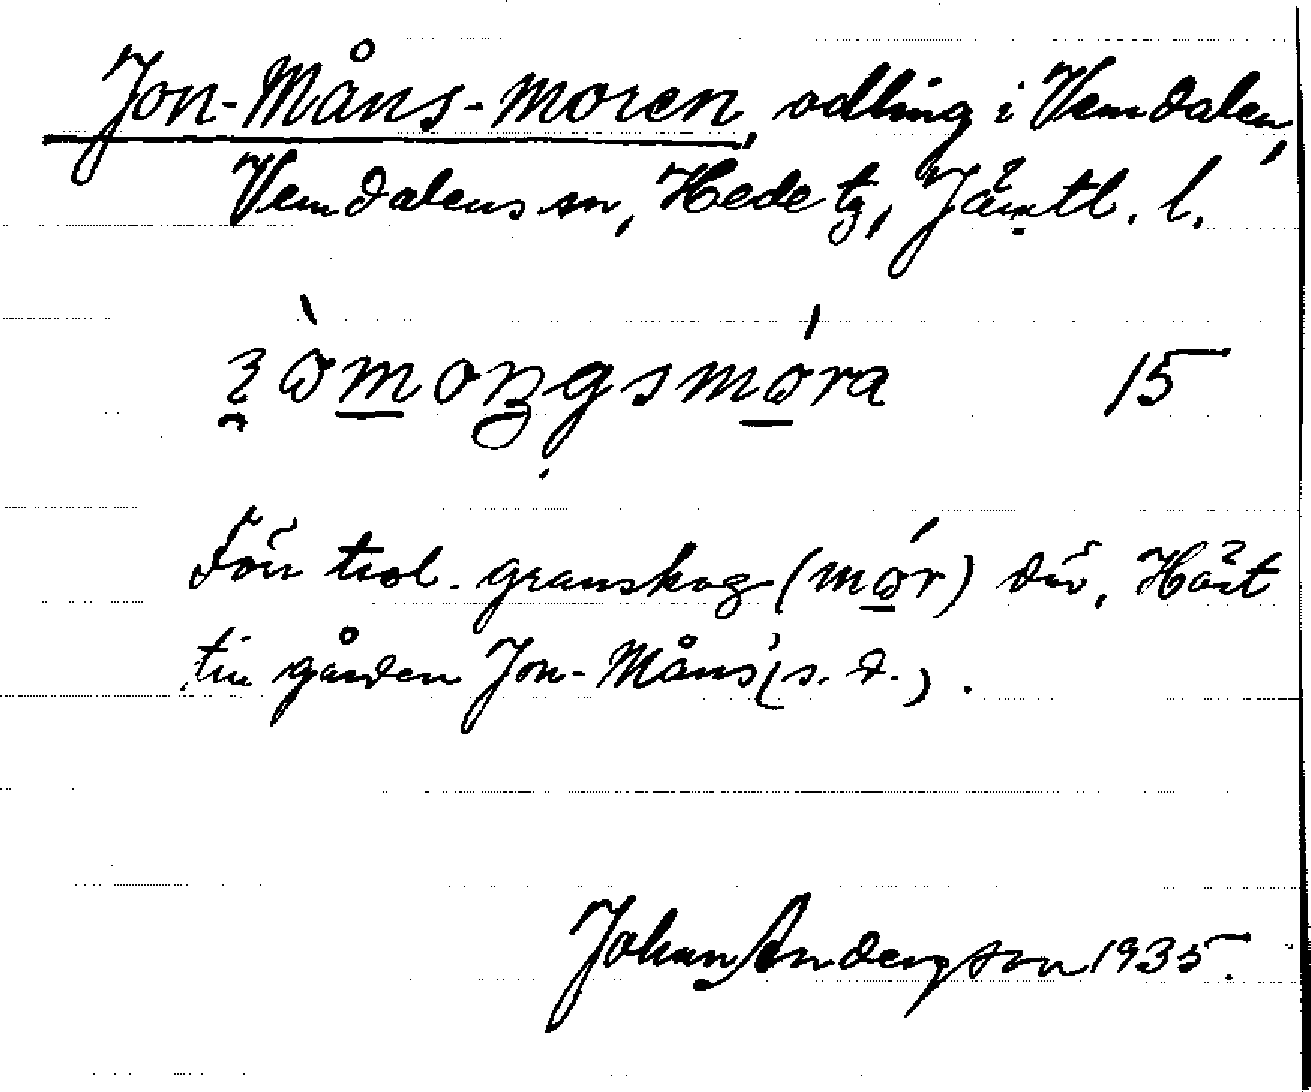 Jon-Måns-moren, odling i Vemdalen,
Vemdalens sn, Hede tg, Jämtl. l.
15
Förr trol. granskog (mór) där. Hört
till gården Jon-Måns (s. d.).
Johan Anderson 1935.